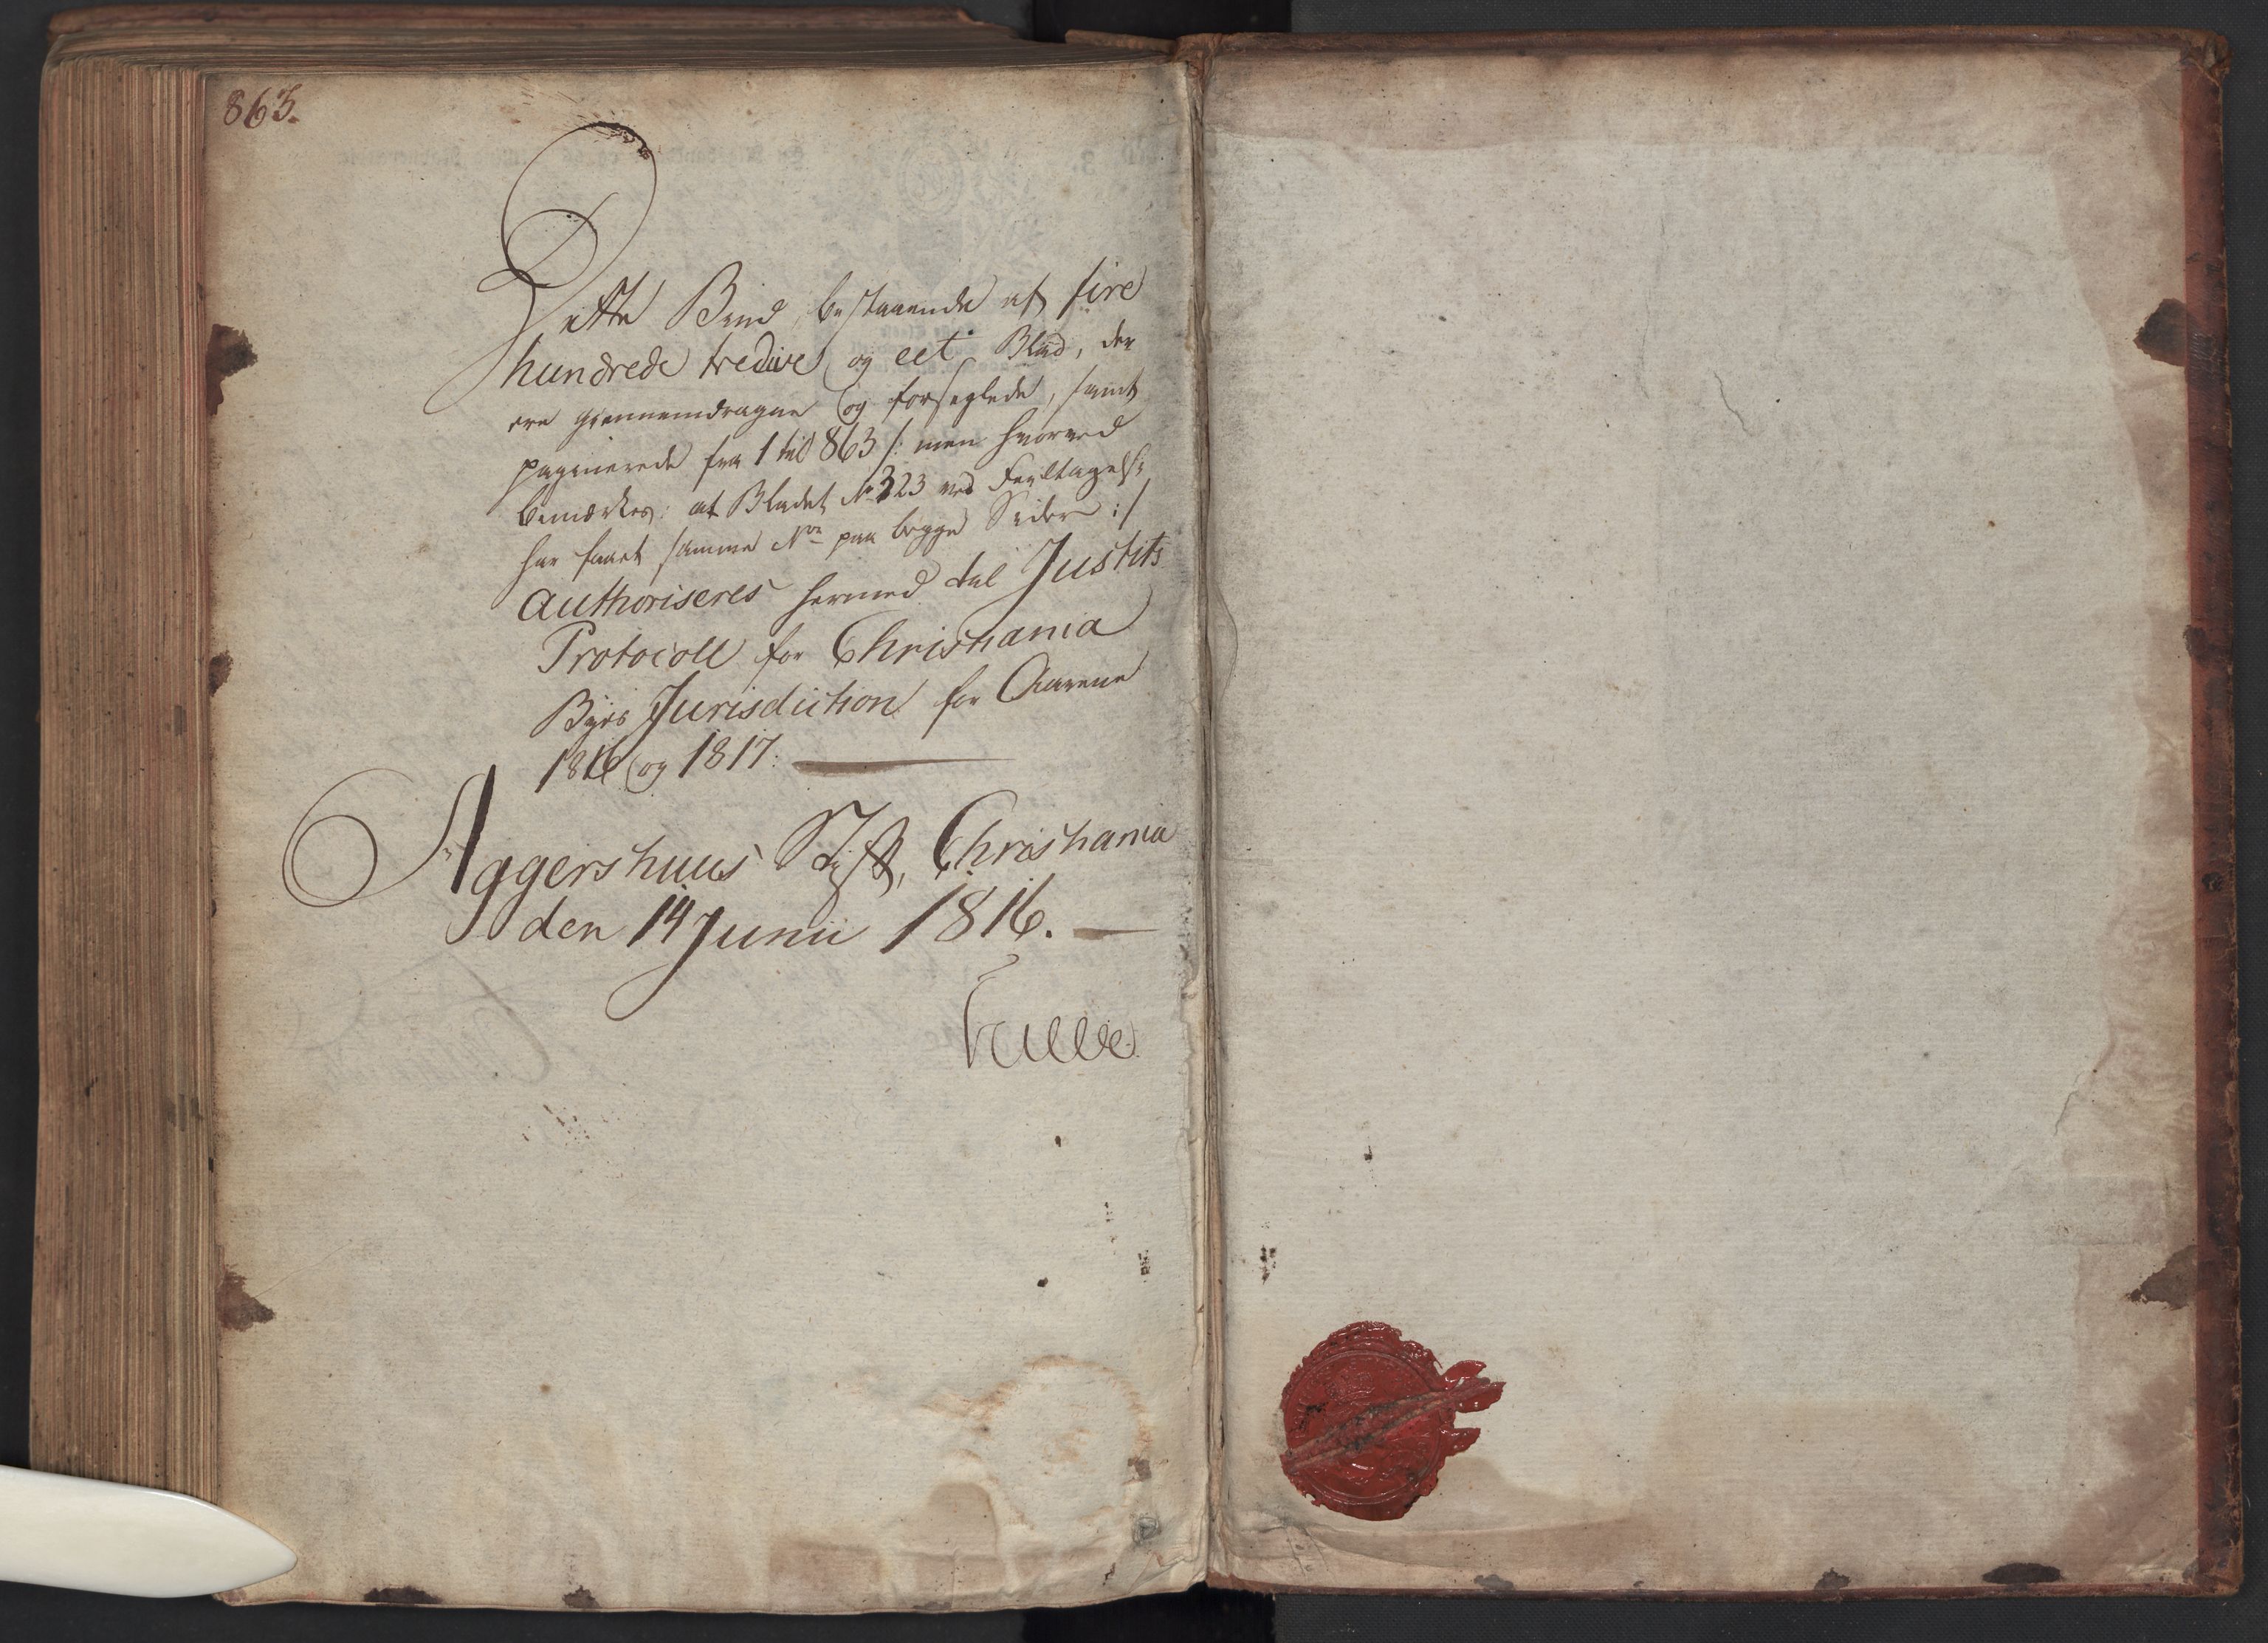 863.
Dette Bind, bestaaende af fire
hundrede tredive og eet Blad, der
ere giennemdragne og forseglede, samt
paginerede fra 1 til 863 /: men hvorved
bemærkes: at Bladet No 323 ved Feiltagelse
har faaet samme Nr paa begge Sider :/
authoriseres hermed til Justits
Protocoll for Christiania
Byes Jurisdiction for Aarene
1816 og 1817.
Aggershuus Stift, Christiania
den 14 Junii 1816.